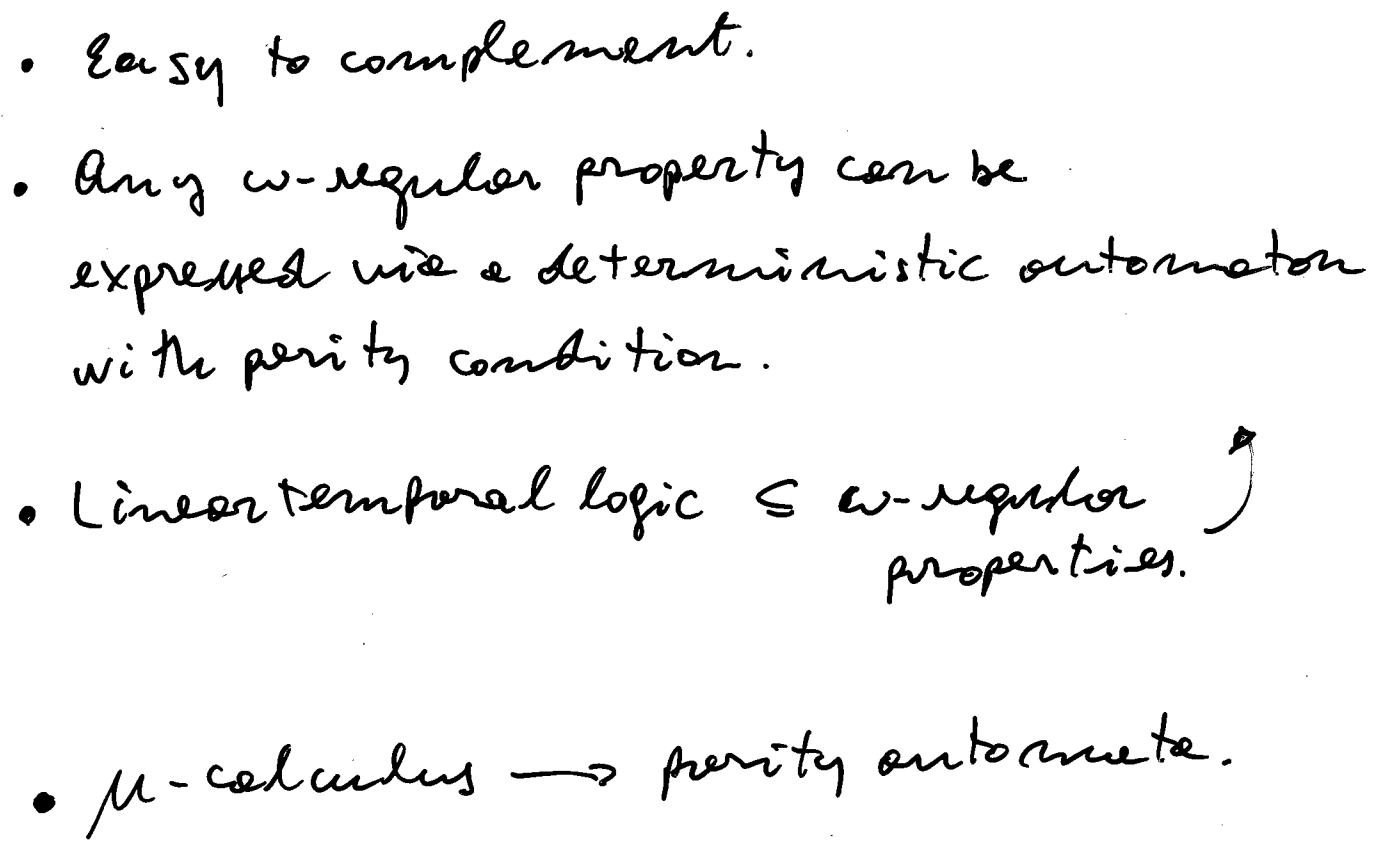 • Easy to complement.
• Any ω-regular property can be
expressed via a deterministic automaton
with parity condition.
• Linear temporal logic ⊆ ω-regular
properties.
• μ-calculus → parity automata.